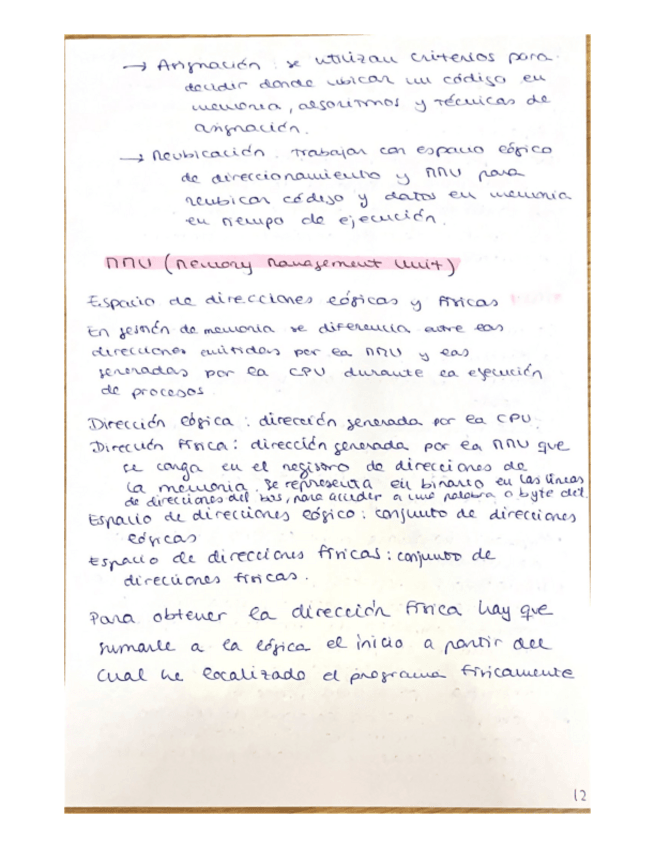 → Asignación: se utilizan criterios para
decidir donde ubicar un código en
memoria, algoritmos y técnicas de
asignación.
→ Reubicación. Trabajar con espacio lógico
de direccionamiento y MMU para
reubicar código y datos en memoria
en tiempo de ejecución.
MMU (Memory Management Unit)
Espacio de direcciones lógicas y físicas
En gestión de memoria se diferencia entre las
direcciones emitidas por la MMU y las
generadas por la CPU durante la ejecución
de procesos.
Dirección lógica: dirección generada por la CPU.
Dirección física: dirección generada por la MMU que
se carga en el registro de direcciones de
la memoria. Se representa en binario en las líneas
de direcciones del bus, para acceder a una palabra o byte del
Espacio de direcciones lógico: conjunto de direcciones
lógicas
Espacio de direcciones físicas: conjunto de
direcciones físicas.
Para obtener la dirección física hay que
sumarle a la lógica el inicio a partir del
cual he localizado el programa físicamente
12